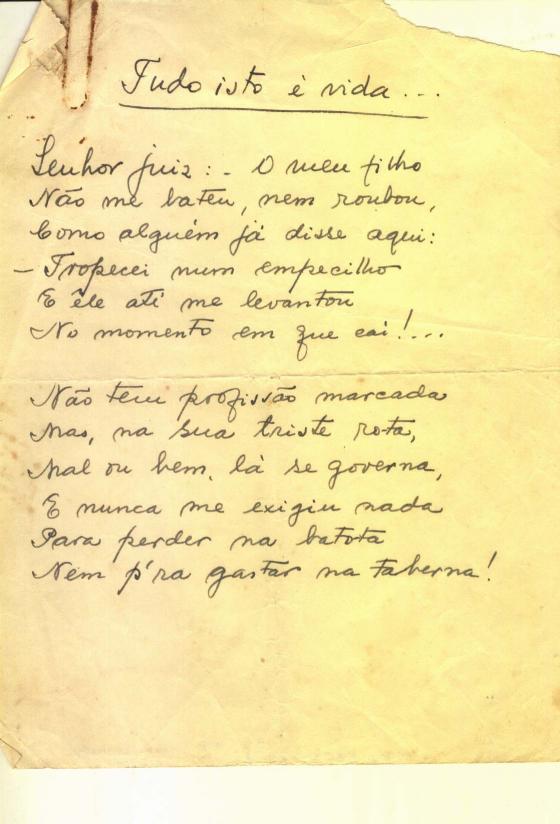 Tudo isto é vida...
Senhor juiz: - O meu filho
Não me bateu, nem roubou,
Como alguém já disse aqui:
- Tropecei num empecilho
E êle até me levantou
No momento em que caí!...
Não tem profissão marcada
Mas, na sua triste rota,
Mal ou bem, lá se governa,
E nunca me exigiu nada
Para perder na batota
Nem p'ra gastar na taberna!